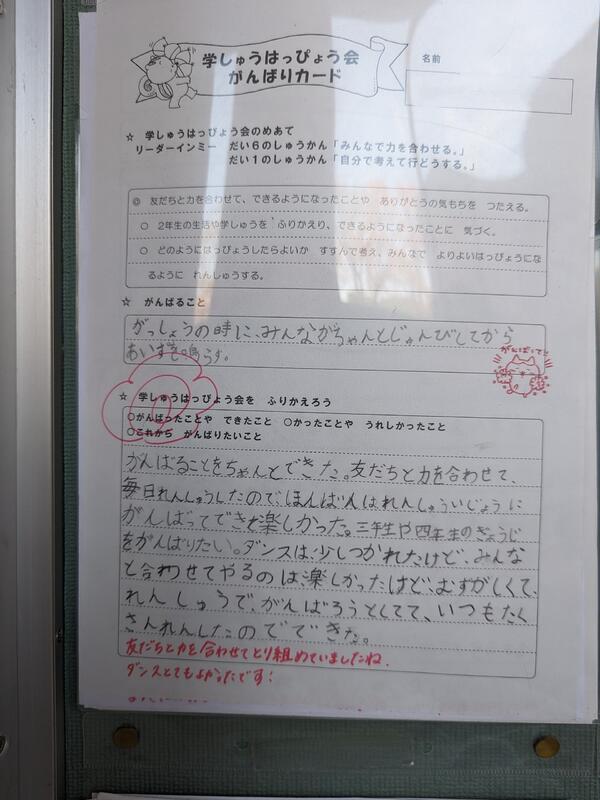 学しゅうはっぴょう会
がんばりカード
名前
☆ 学しゅうはっぴょう会のめあて
リーダーインミー だい6のしゅうかん「みんなで力を合わせる。」
だい1のしゅうかん「自分で考えて行どうする。」
◎ 友だちと力を合わせて、できるようになったことや ありがとうの気もちを つたえる。
○ 2年生の生活や学しゅうを ふりかえり、できるようになったことに 気づく。
○ どのようにはっぴょうしたらよいか すすんで考え、みんなで よりよいはっぴょうにな
るように れんしゅうする。
☆ がんばること
がっしょうの時に、みんながちゃんとじゅんびしてから
あいずを鳴らす。
がんばって!
☆ 学しゅうはっぴょう会を ふりかえろう
○がんばったことや できたこと ○かったことや うれしかったこと
○これから がんばりたいこと
がんばることをちゃんとできた。友だちと力を合わせて、
毎日れんしゅうしたので、ほんばんはれんしゅういじょうに
がんばってできて楽しかった。三年生や四年生のぎょうじ
をがんばりたい。ダンスは、少しつかれたけど、みんな
と合わせてやるのは、楽しかったけど、むずがしくて、
れんしゅうで、がんばろうとしてて、いつもたく
さんれんしたのでできた。
友だちと力を合わせてとり組めていましたね。
ダンスとてもよかったです!